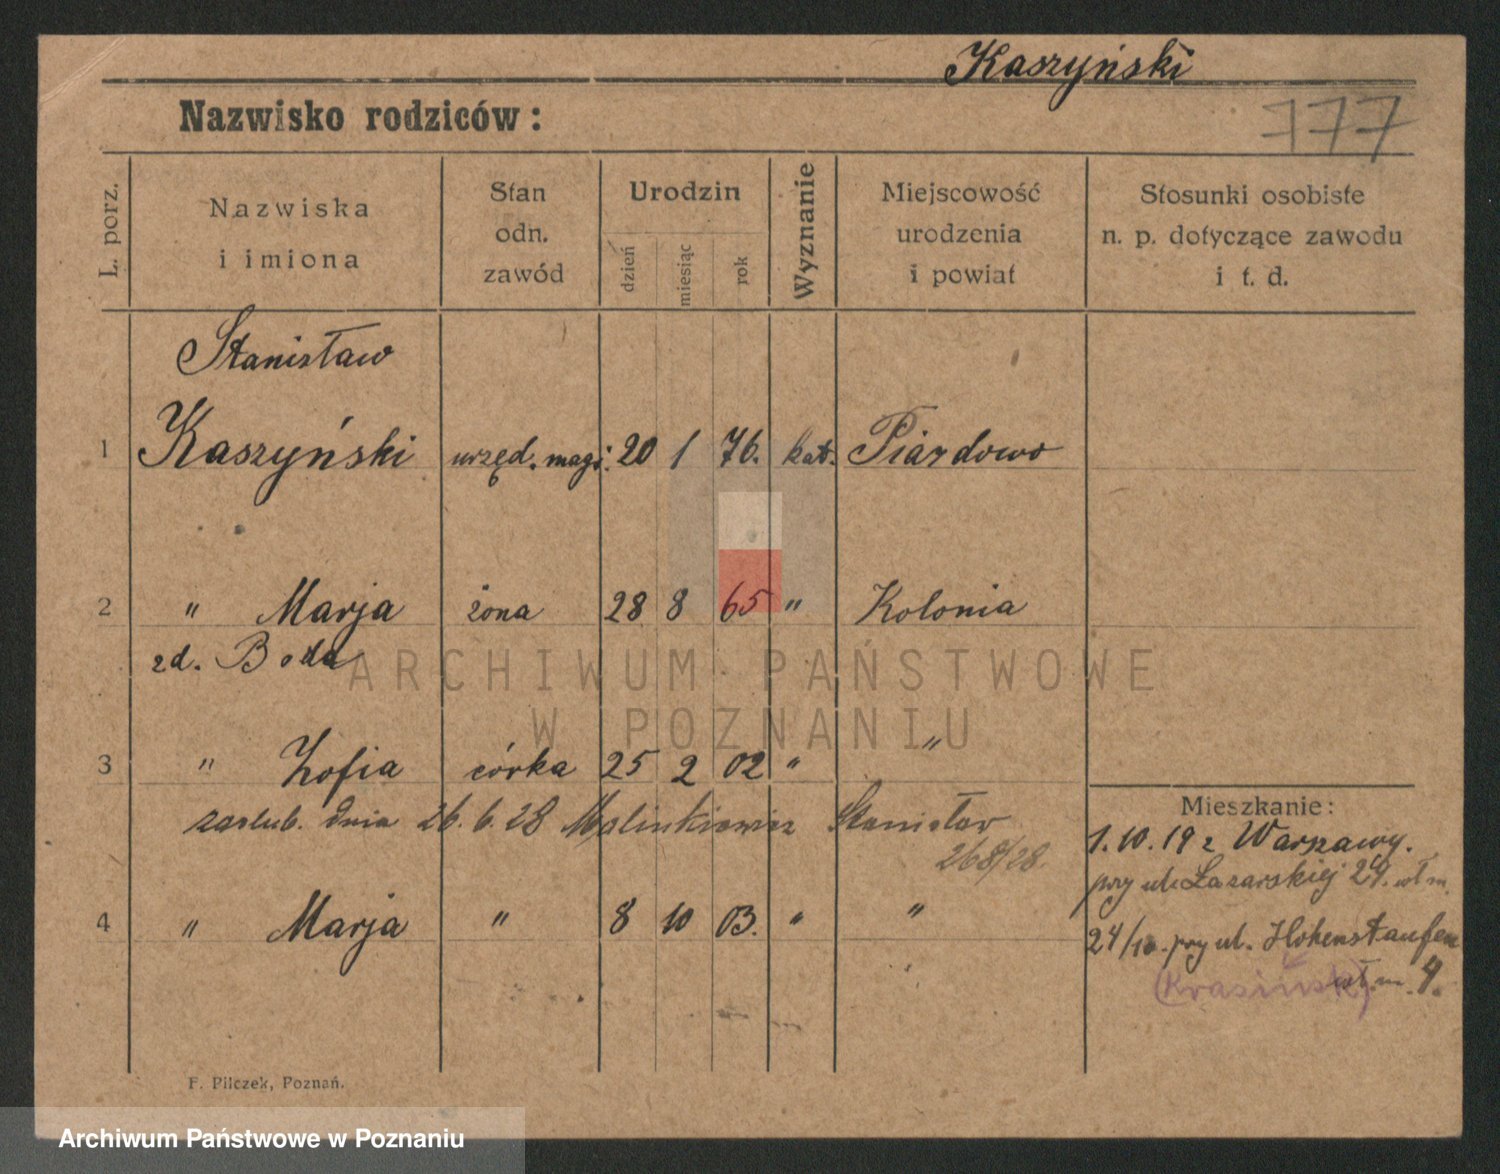 Kaszyński
Nazwisko rodziców:
777
L. porz.
Nazwiska
i imiona
Stan
odn.
zawód
Urodzin
dzień
miesiąc
rok
Wyznanie
Miejscowość
urodzenia
i powiat
Stosunki osobiste
n. p. dotyczące zawodu
i t. d.
Stanisław
1 Kaszyński urzęd. magi. 20 1 76. kat. Piardowo
2 " Marja żona 28 8 65 " Kolonia
zd. Boda
ARCHIWUM PAŃSTWOWE
W POZNANIU
3 " Zofia córka 25 2 02 " "
zaślub. dnia 26.6.28 Malinkiewicz Stanisław
268/28.
4 " Marja " 8 10 03. " "
Mieszkanie:
1.10.19 z Warszawy.
przy ul. Łazarskiej 24. wł m.
24/10. przy ul. Hohenstaufen
wł. m. 4.
(Krasińsk)
F. Pilczek, Poznań.
Archiwum Państwowe w Poznaniu